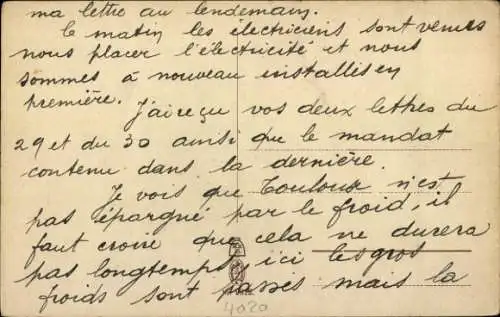 ma lettre au lendemain.
Ce matin les électriciens sont venus
nous placer l'électricité et nous
sommes à nouveau installés en
première.
J'ai reçu vos deux lettres du
29 et du 30 ainsi que le mandat
contenu dans la dernière.
Je vois que Toulouse n'est
pas épargné par le froid, il
faut croire que cela ne durera
pas longtemps, ici les gros
froids sont passés mais la
4020